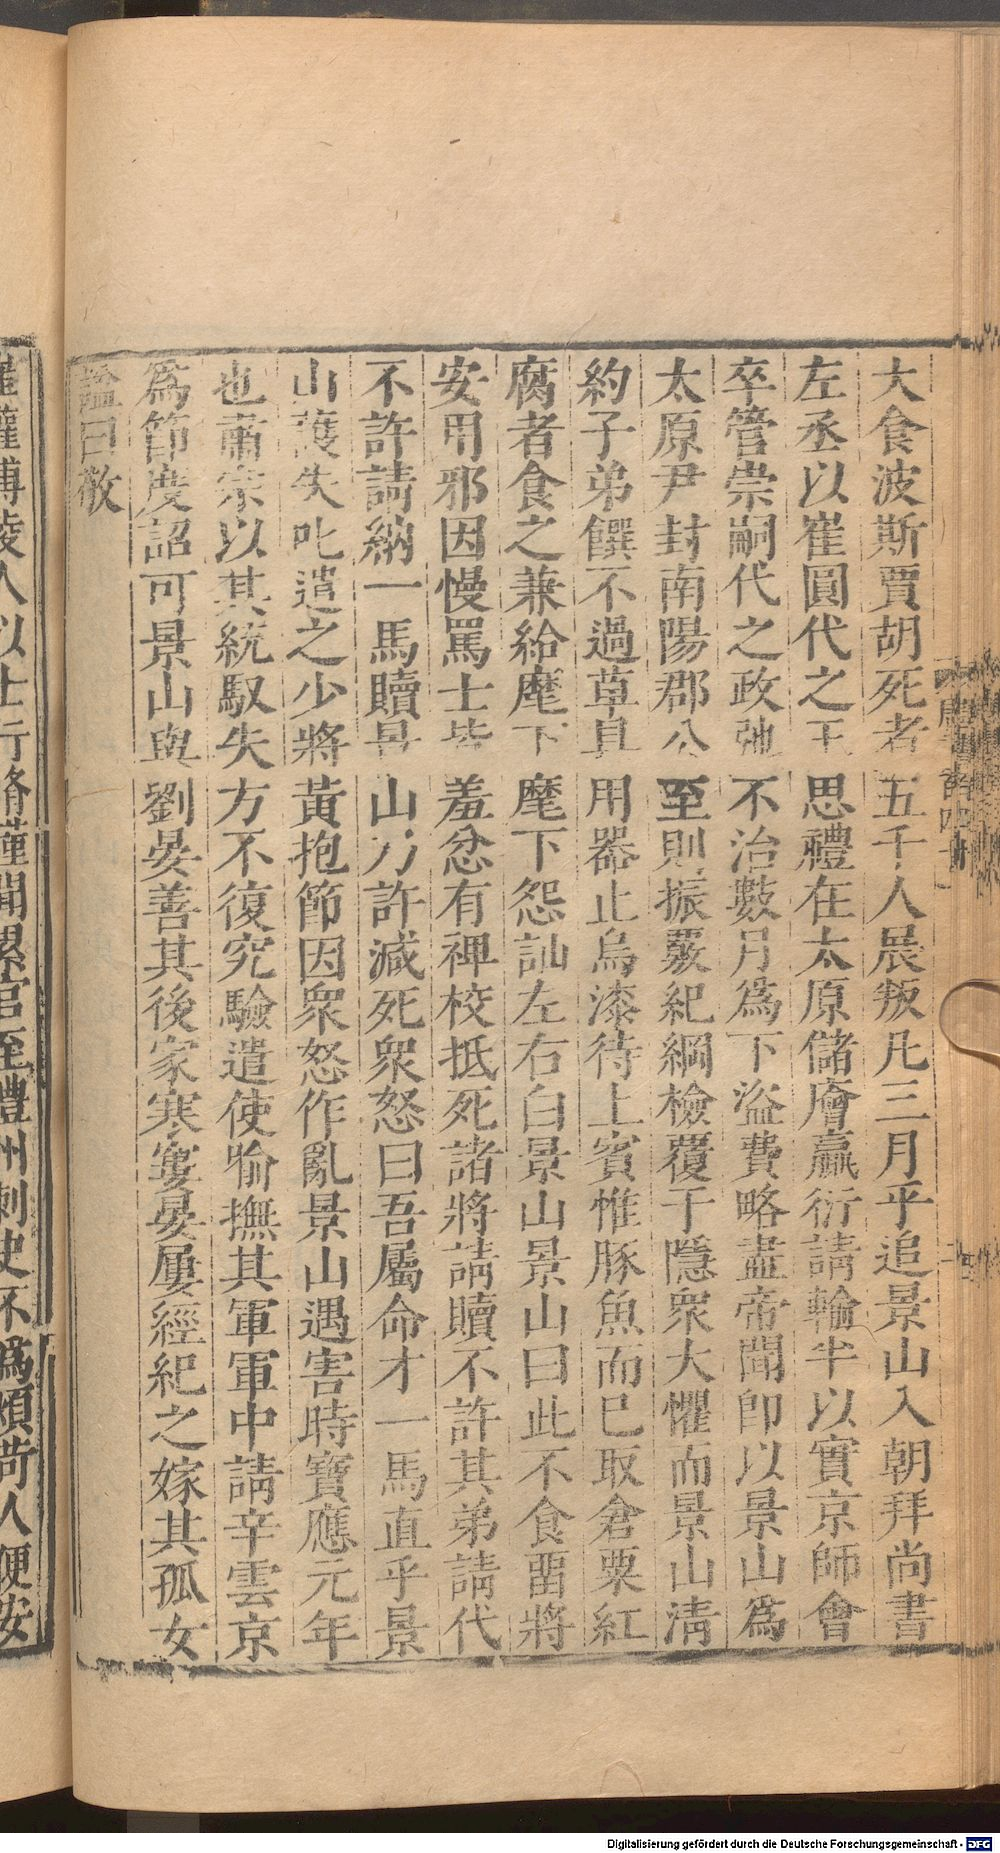 大食波斯賈胡死者五千人展叛凡三月乎追景山入朝拜尚書
左丞以崔圓代之王思禮在太原儲廥贏衍請輸半以實京師會
卒管崇嗣代之政弛不治數月為下盜費略盡帝聞即以景山為
太原尹封南陽郡公至則振覈紀綱檢覆干隱眾大懼而景山清
約子弟饌不過草具用器止烏漆待上賓惟豚魚而已取倉粟紅
腐者食之兼給麾下麾下怨訕左右白景山景山曰此不食畱將
安用邪因慢罵士皆羞忿有裨校抵死諸將請贖不許其弟請代
不許請納一馬贖景山乃許減死眾怒曰吾屬命才一馬直乎景
山護失叱遣之少將黃抱節因眾怒作亂景山遇害時寶應元年
也肅宗以其統馭失方不復究驗遣使喻撫其軍軍中請辛雲京
為節度詔可景山與劉晏善其後家寒窶晏屢經紀之嫁其孤女
諡曰敬
崔瓘博陵人以士行脩謹聞累官至澧州刺史不為煩苛人便安
Digitalisierung gefördert durch die Deutsche Forschungsgemeinschaft - DFG